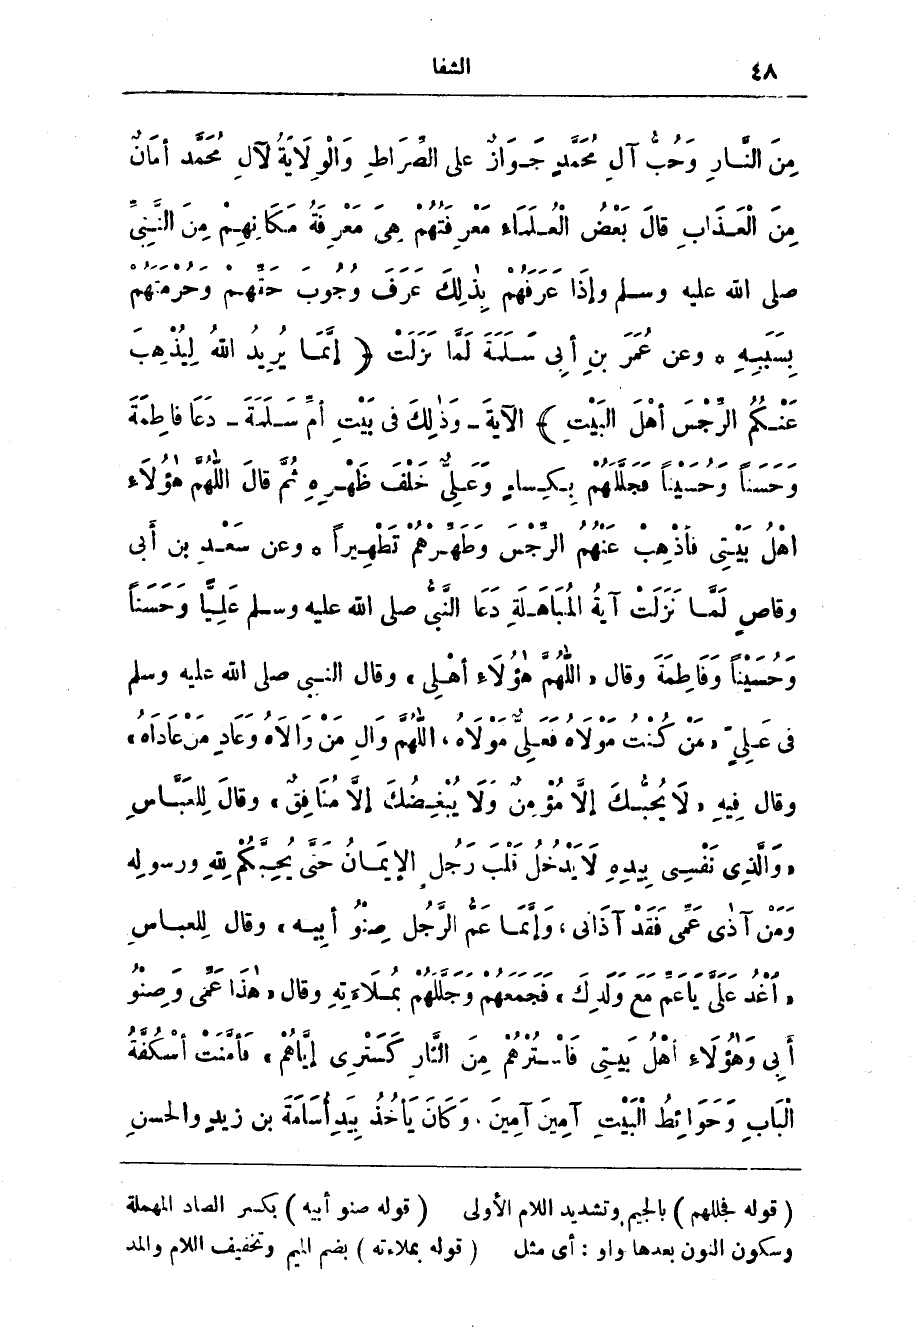 ٤٨ الشفا
مِنَ النَّارِ وَحُبُّ آلِ مُحَمَّدٍ جَوَازٌ على الصِّرَاطِ وَالْوِلَايَةُ لآلِ مُحَمَّد أمَانٌ
مِنَ الْعَذَابِ قالَ بَعْضُ الْعُلَمَاءِ مَعْرِفَتُهُمْ هِىَ مَعْرِفَةُ مَكَانِهِمْ مِنَ النَّبِىِّ
صلى الله عليه وسلم وإذَا عَرَفَهُمْ بِذٰلِكَ عَرَفَ وُجُوبَ حَقِّهِمْ وَحُرْمَتِهِمْ
بِسَبَبِهِ ٥ وعن عُمَرَ بنِ أبِى سَلَمَةَ لَمَّا نَزَلَتْ ﴿ إنَّمَا يُرِيدُ اللهُ لِيُذْهِبَ
عَنْكُمُ الرِّجْسَ أهْلَ البَيْتِ ﴾ الآيةَ - وَذٰلِكَ فى بَيْتِ أمِّ سَلَمَةَ - دَعَا فاطِمَةَ
وَحَسَناً وَحُسَيْناً فَجَلَّلَهُمْ بِكِساءٍ وَعَلِىٌّ خَلْفَ ظَهْرِهِ ثُمَّ قالَ اللّٰهُمَّ هٰؤُلَاءِ
اهْلُ بَيْتِى فأذْهِبْ عَنْهُمُ الرِّجْسَ وَطَهِّرْهُمْ تَطْهِيراً ٥ وعن سَعْدِ بنِ أبى
وقاصٍ لَمَّا نَزَلَتْ آيةُ المُبَاهَلَةِ دَعَا النَّبىُّ صلى الله عليه وسلم عَلِيًّا وَحَسَناً
وَحُسَيْناً وَفَاطِمَةَ وقال «اللّٰهُمَّ هٰؤُلَاءِ أهْلِى» وقال النبى صلى الله عليه وسلم
فى عَلِىٍّ «مَنْ كُنْتُ مَوْلَاهُ فَعَلِىٌّ مَوْلَاهُ، اللّٰهُمَّ وَالِ مَنْ وَالَاهُ وَعَادِ مَنْ عَادَاهُ»
وقال فِيهِ «لَا يُحِبُّكَ إلَّا مُؤْمِنٌ وَلَا يُبْغِضُكَ إلَّا مُنَافِقٌ» وقالَ لِلعَبَّاسِ
«وَالَّذِى نَفْسِى بِيدِهِ لَا يَدْخُلُ قَلْبَ رَجُلٍ الإيمَانُ حَتَّى يُحِبَّكُمْ لِلهِ ورسولِه
وَمَنْ آذٰى عَمِّى فَقَدْ آذَانى، وَإنَّمَا عَمُّ الرَّجُلِ صِنْوُ أبِيه» وقال لِلعباسِ
«اُغْدُ عَلَىَّ يَاعَمِّ مَعَ وَلَدِكَ» فَجَمَعَهُمْ وَجَلَّلَهُمْ بِمُلَاءَتِهِ وقال «هٰذَا عَمِّى وَصِنْوُ
أبِى وَهٰؤُلَاءِ أهْلُ بَيتِى فَاسْتُرْهُمْ مِنَ النَّارِ كَسَتْرِى إيَّاهُمْ» فَأمَّنَتْ أسْكُفَّةُ
الْبَابِ وَحَوَائِطُ الْبَيْتِ آمِينَ آمِينَ. وَكَانَ يَأْخُذُ بِيَدِ أُسَامَةَ بنِ زيدٍ والحسنِ
( قوله فجللهم ) بالجيم وتشديد اللام الأولى ( قوله صنو أبيه ) بكسر الصاد المهملة
وسكون النون بعدها واو : أى مثل ( قوله بملاءته ) بضم الميم وتخفيف اللام والمد